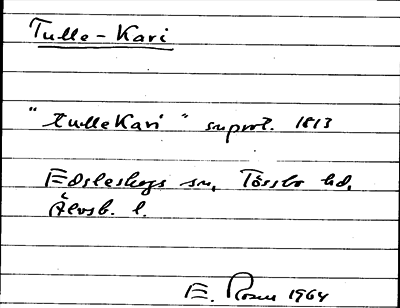 Tulle-Kari
"tulleKari" snprot. 1813
Edsleskogs sn, Tössbo hd.
Älvsb. l.
E. Rosen 1964